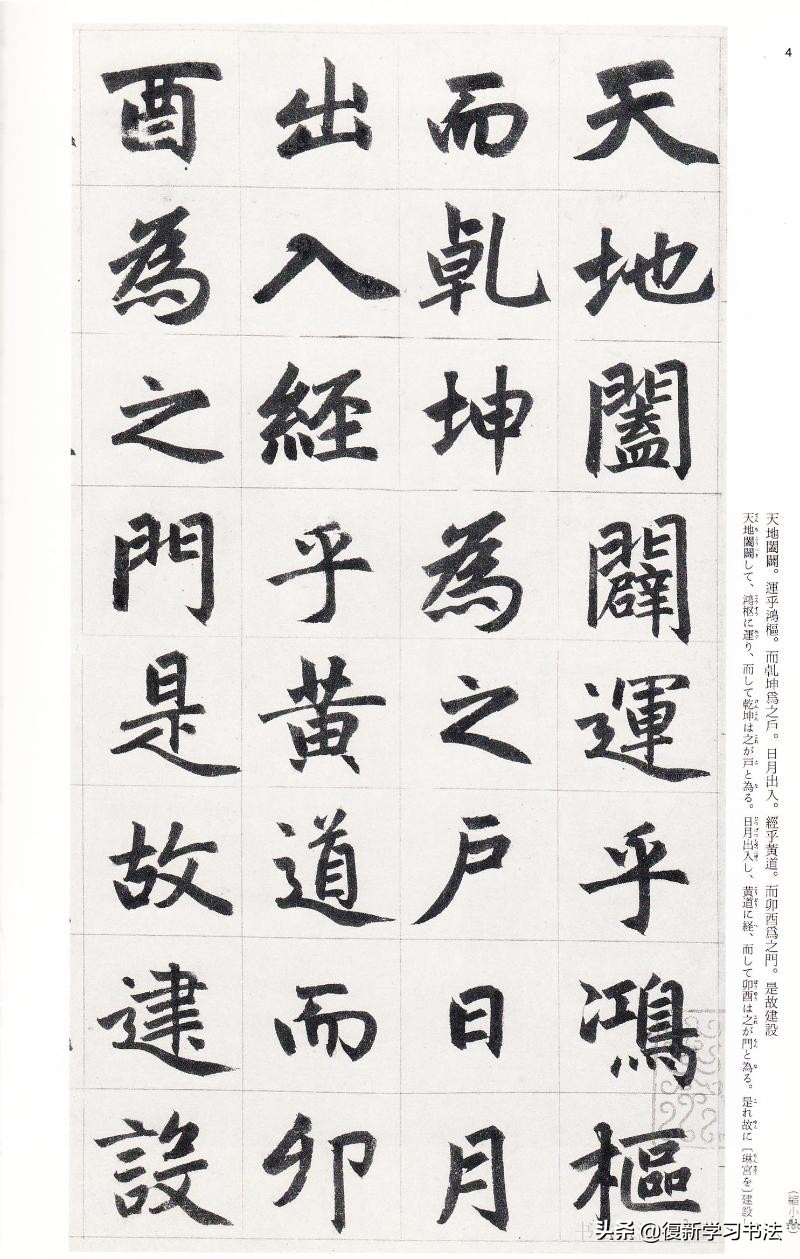 4
天地闔闢。運乎鴻樞。而乹坤爲之戶。日月出入。經乎黃道。而卯酉爲之門。是故建設
天地闔闢して、鴻枢に運り、而して乾坤は之が戸と為る。日月出入し、黄道に経、而して卯酉は之が門と為る。是れ故に〔琳宮を〕建設
天地闔闢運乎鴻樞
而乹坤為之戶日月
出入經乎黃道而卯
酉為之門是故建設
(縮小
头条 @復新学习书法